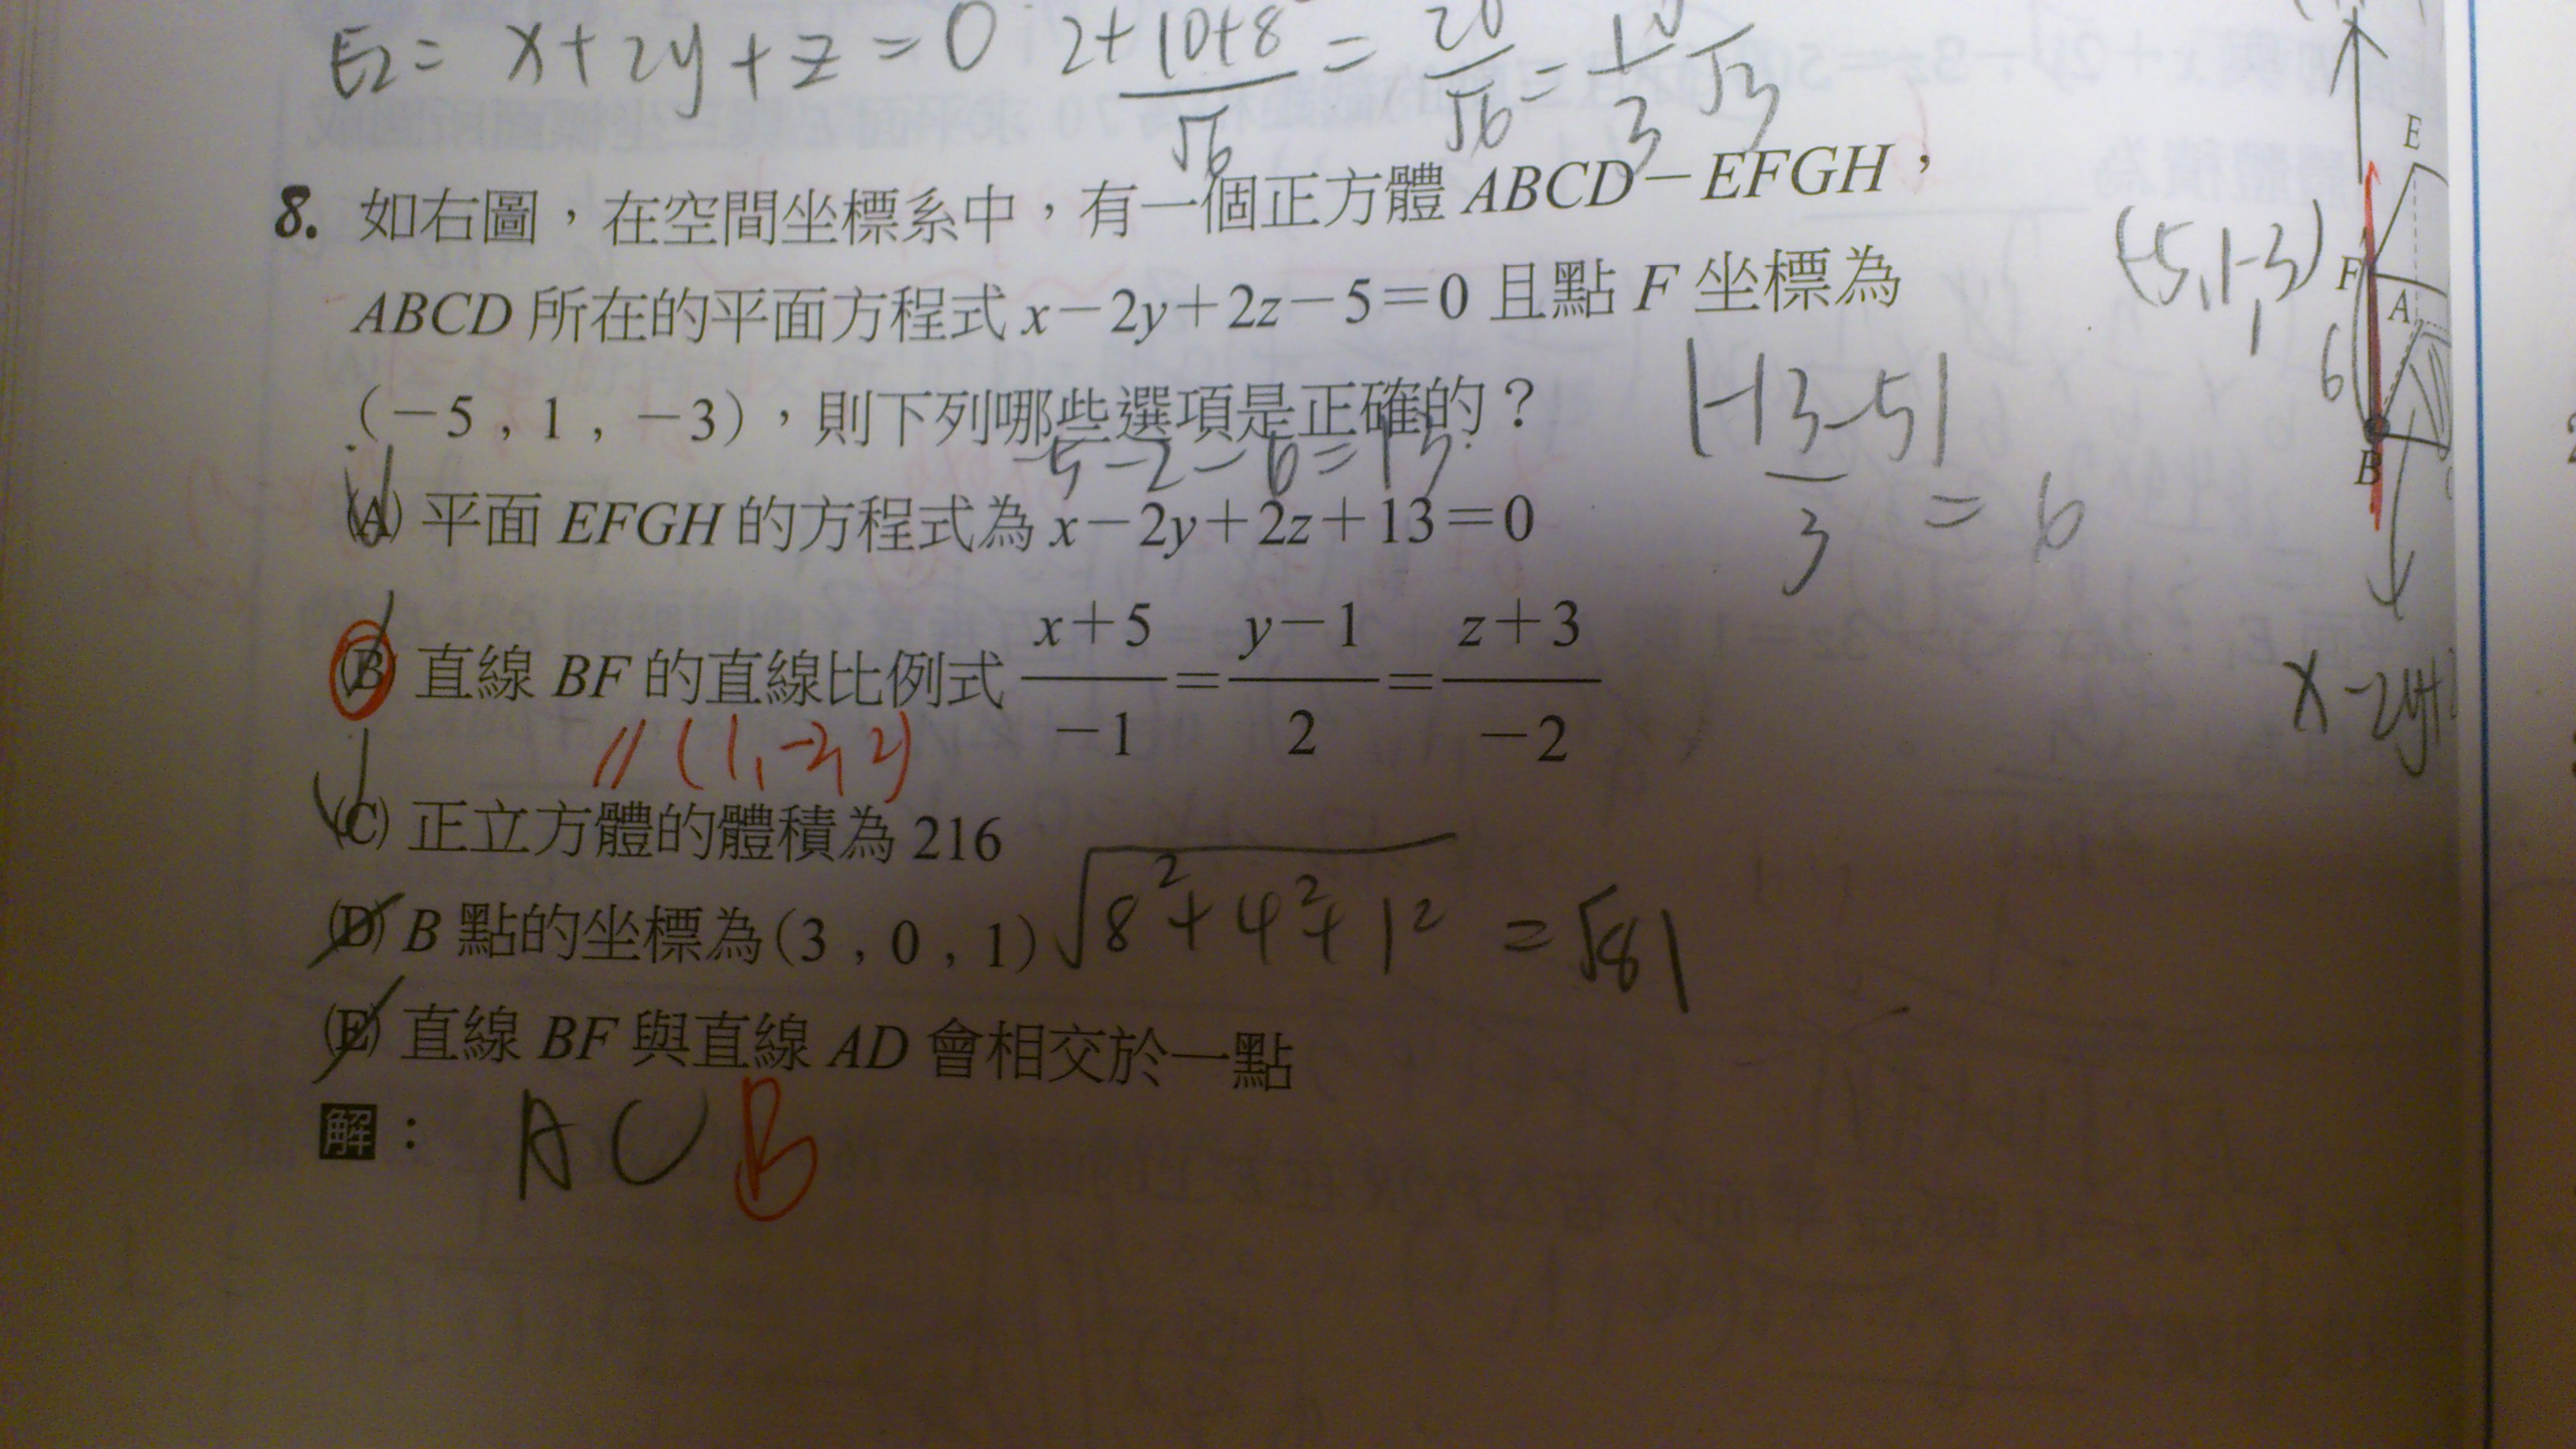 E2= x+2y+z=0 2+10+8/√6 = 20/√6 = 10/3 √3
8. 如右圖，在空間坐標系中，有一個正方體 ABCD－EFGH，
ABCD 所在的平面方程式 x－2y＋2z－5＝0 且點 F 坐標為
（－5，1，－3），則下列哪些選項是正確的？
-5-2-6=13
(A) 平面 EFGH 的方程式為 x－2y＋2z＋13＝0
|-13-5|/3 = 6
(B) 直線 BF 的直線比例式 x＋5/－1＝y－1/2＝z＋3/－2
// (1,-2,2)
(C) 正立方體的體積為 216
(D) B 點的坐標為(3，0，1) √8²+4²+1² = √81
(E) 直線 BF 與直線 AD 會相交於一點
解： A C B
E
(-5,1,-3)
F
A
6
B
x-2y+